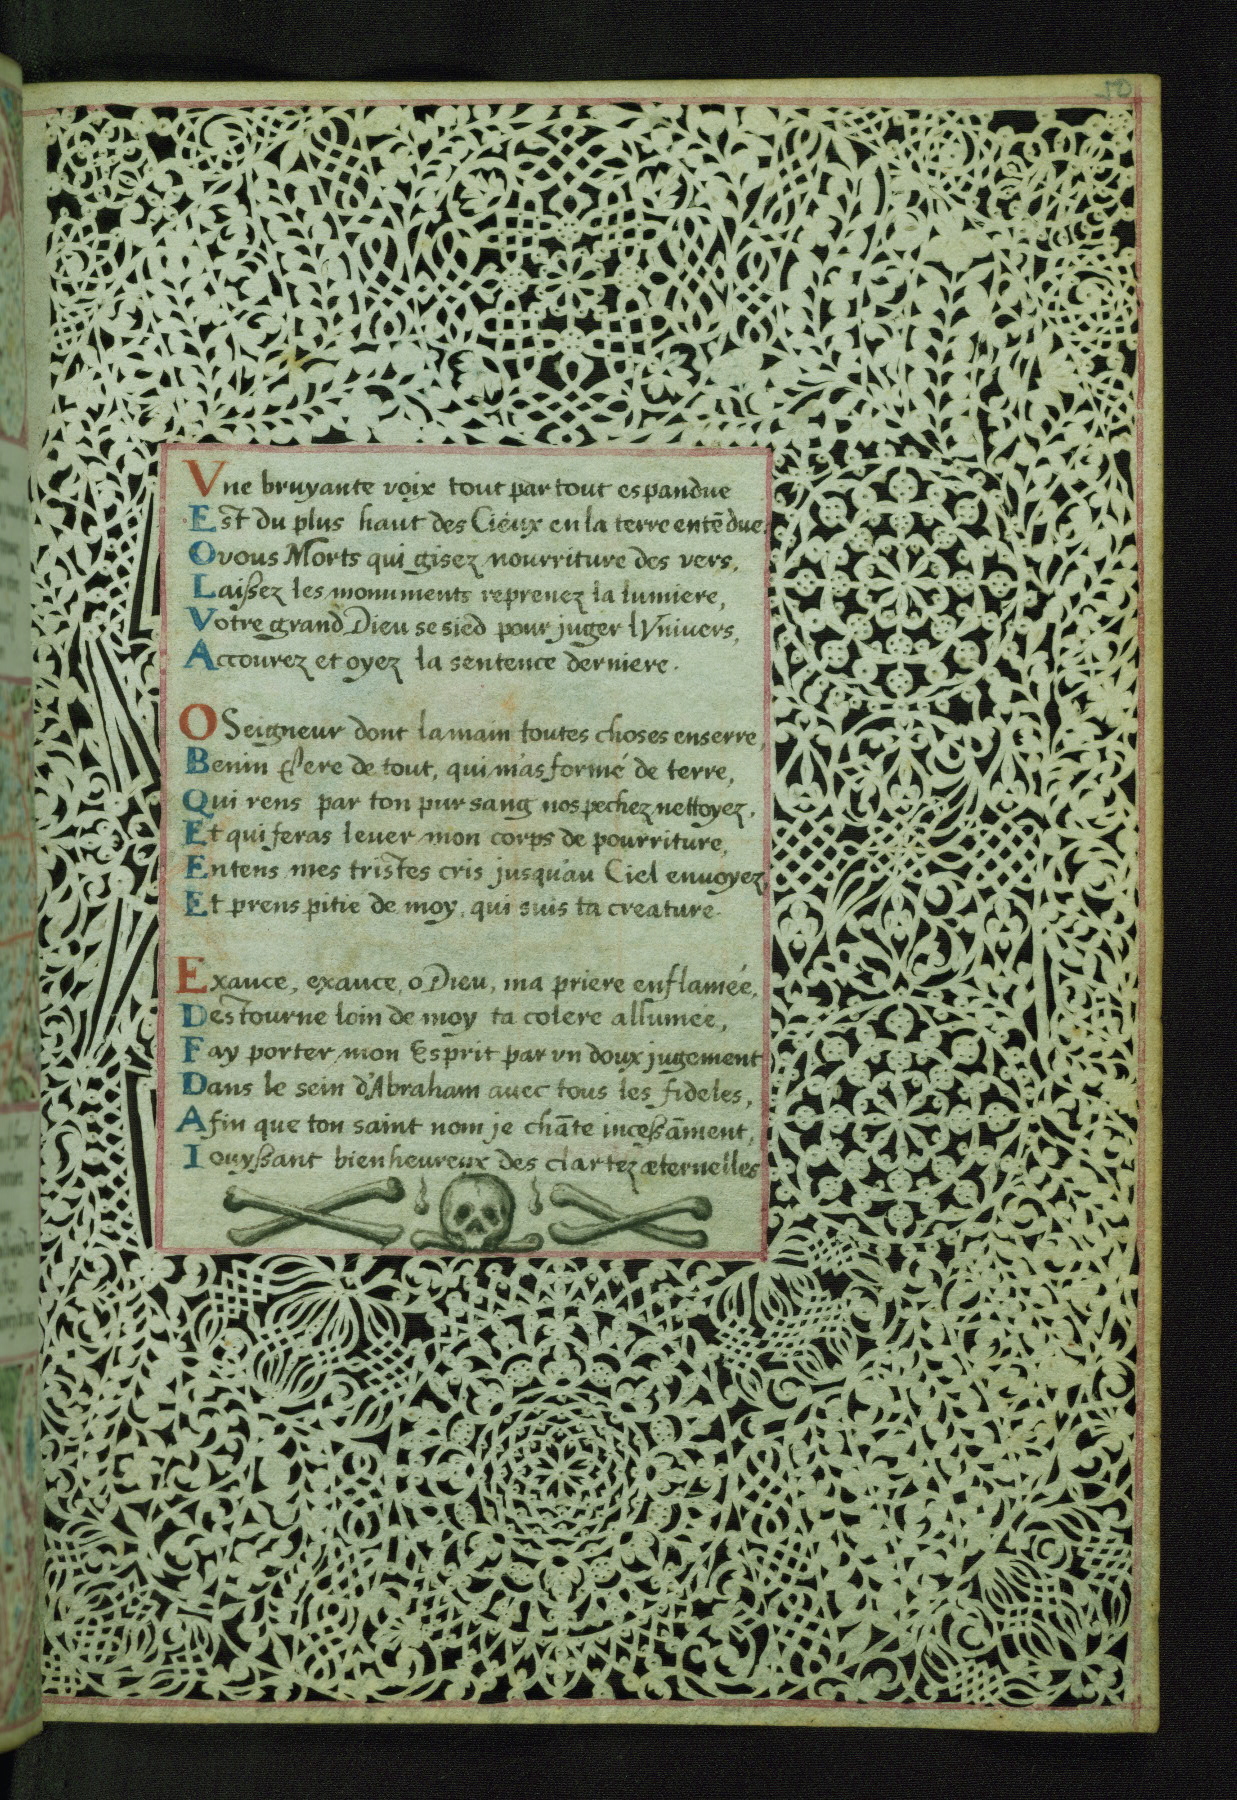 Vne bruyante voix tout par tout espandue
Est du plus haut des Cieux en la terre entēdue,
O vous Morts qui gisez nourriture des vers,
Laißez les monuments reprenez la lumiere,
Votre grand Dieu se sied pour juger l'Vnivers,
Accourez et oyez la sentence derniere.
O Seigneur dont la main toutes choses enserre,
Benin Pere de tout, qui m'as formé de terre,
Qui rens par ton pur sang nos pechez nettoyez,
Et qui feras lever mon corps de pourriture,
Entens mes tristes cris jusqu'au Ciel envoyez
Et prens pitie de moy, qui suis ta creature.
Exauce, exauce, o Dieu, ma priere enflamée,
Destourne loin de moy ta colere allumee,
Fay porter mon Esprit par vn doux jugement
Dans le sein d'Abraham avec tous les fideles,
Afin que ton saint nom je chāte inceßāment,
Iouyßant bienheureux des clartez æternelles